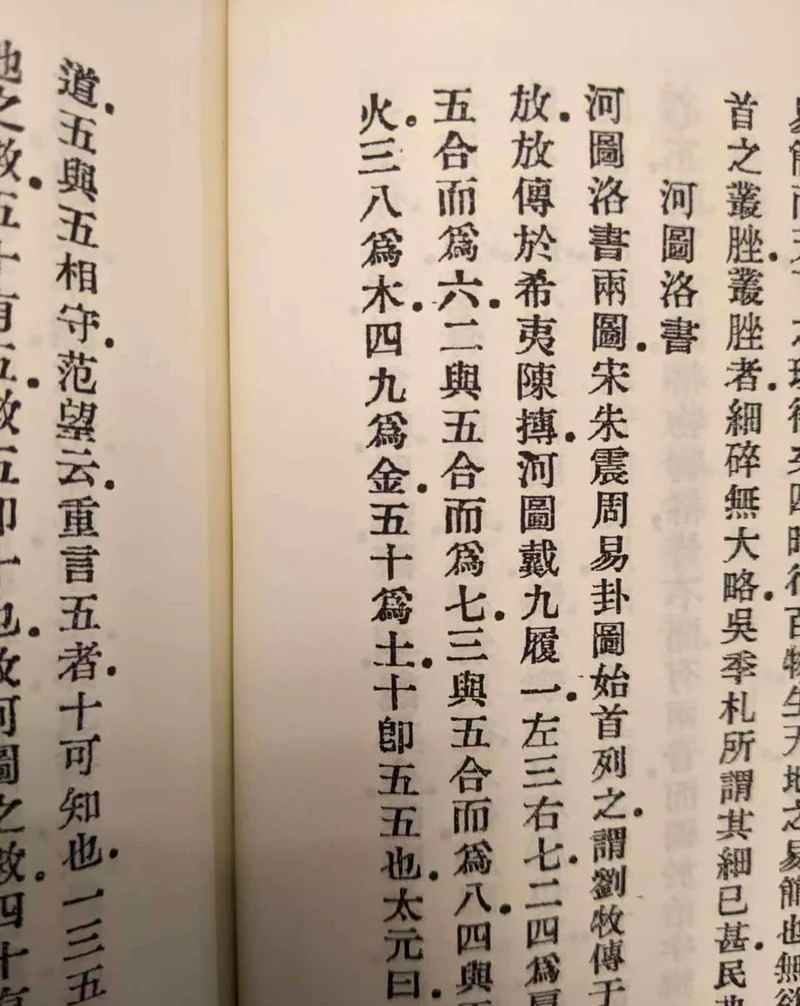 易簡而天下之理得矣四時行百物生天地之易簡也無欲
首之叢脞。叢脞者。細碎無大略。吳季札所謂其細已甚。民
河圖洛書
河圖洛書兩圖。宋朱震周易卦圖始首列之。謂劉牧傳于
放。放傳於希夷陳摶。河圖戴九履一。左三右七。二四爲肩
五合而爲六。二與五合而爲七。三與五合而爲八。四與
火。三八爲木。四九爲金。五十爲土。十卽五五也。太元曰。
道。五與五相守。范望云。重言五者。十可知也。一三五
地之數。五十有五。數五卽十也。故河圖之數。四十有